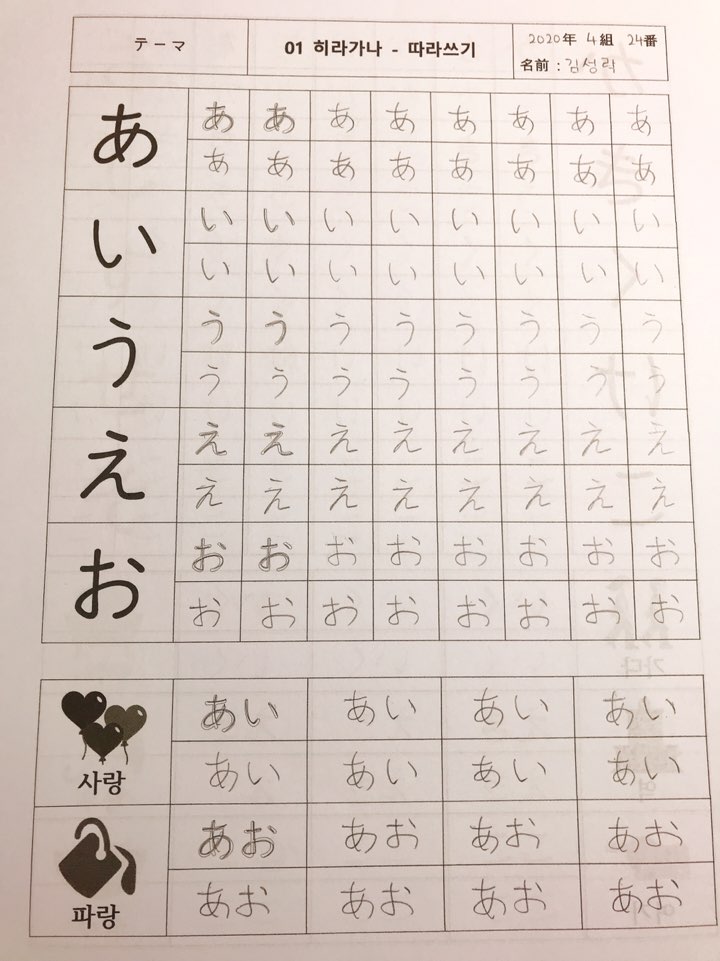 テーマ 01 히라가나 - 따라쓰기 2020年 4組 24番
名前 : 김성락
あ あ あ あ あ あ あ あ あ
あ あ あ あ あ あ あ あ
い い い い い い い い い
い い い い い い い い
う う う う う う う う う
う う う う う う う う
え え え え え え え え え
え え え え え え え え
お お お お お お お お お
お お お お お お お お
사랑 あい あい あい あい
あい あい あい あい
파랑 あお あお あお あお
あお あお あお あお